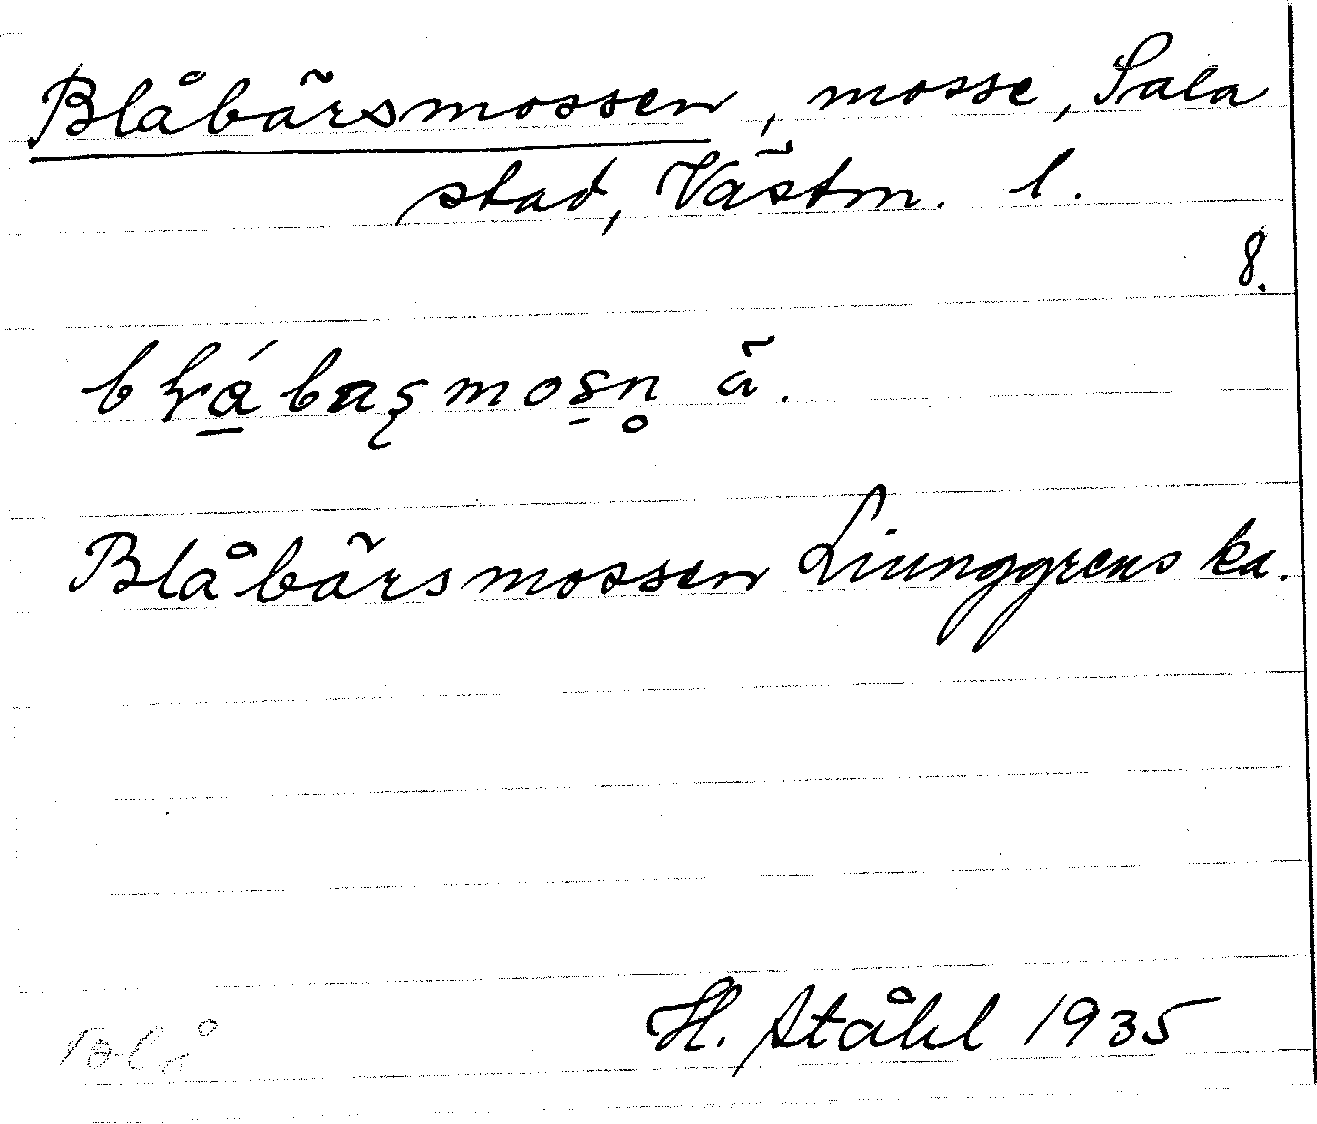 Blåbärsmossen, mosse, Sala
stad, Västm. l.
8.
ä.
Blåbärsmossen Liunggrens ka.
H. Ståhl 1935
Blå